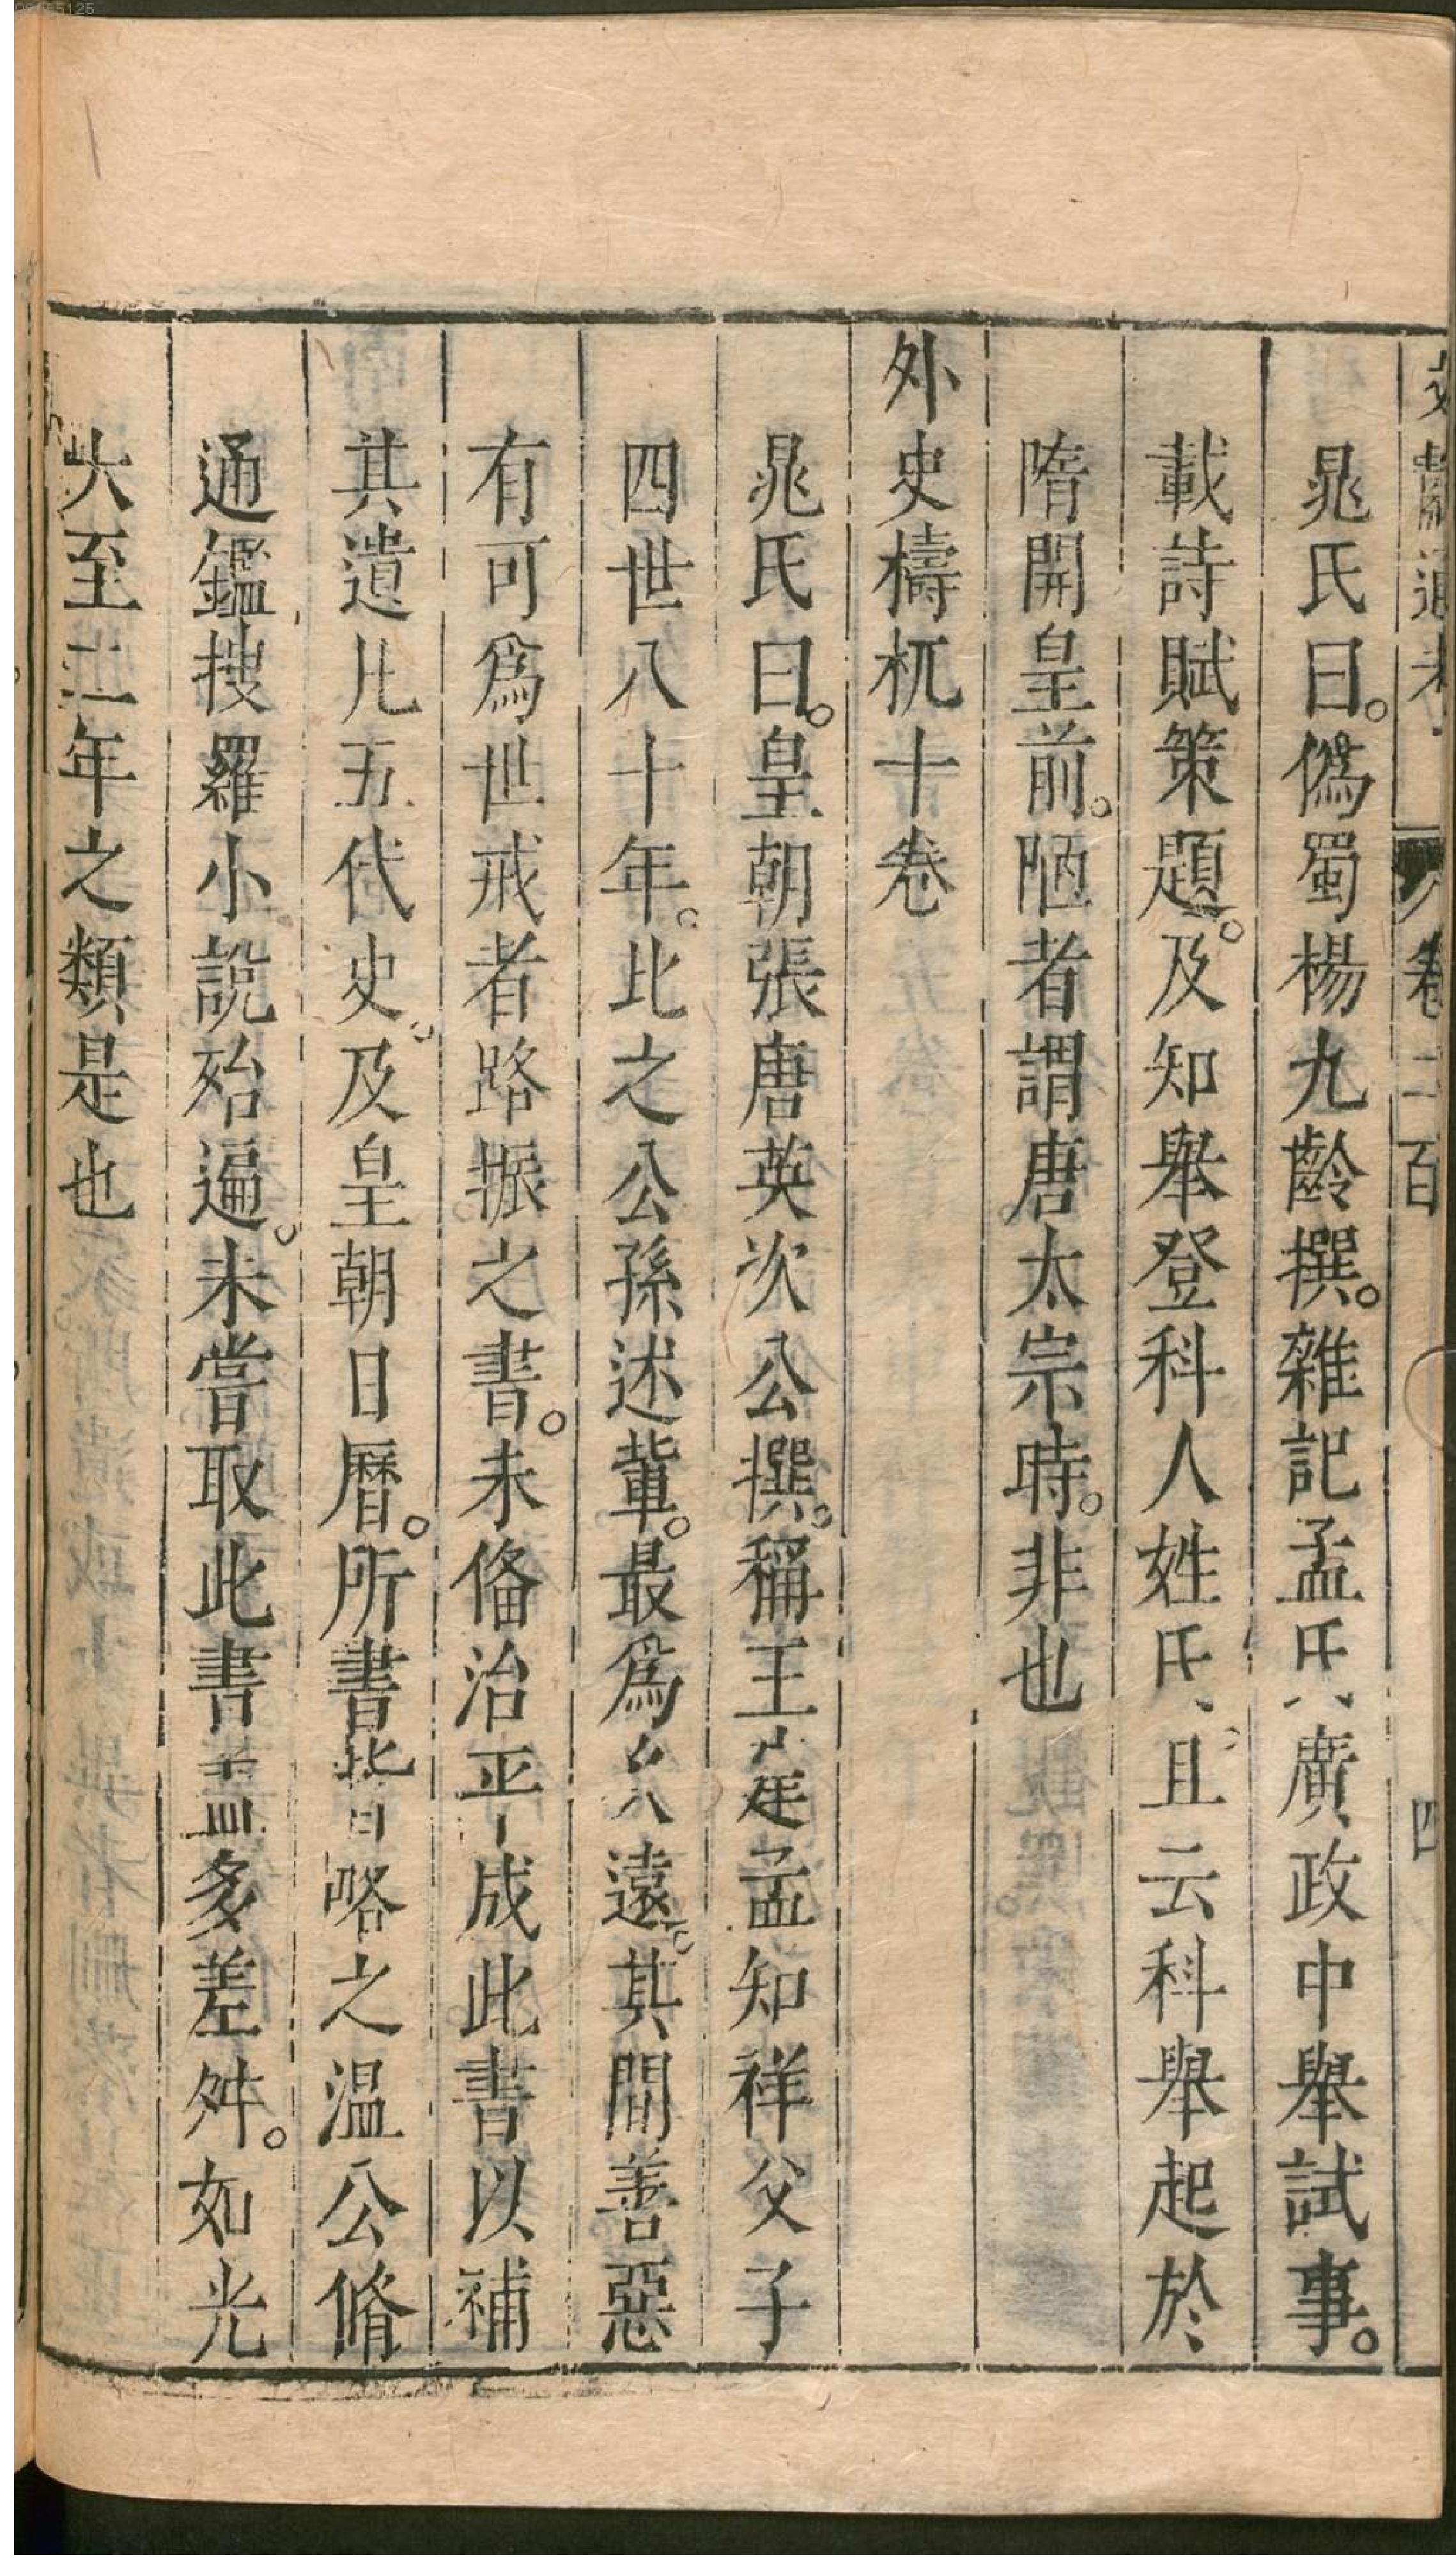 文獻通考 卷二百 四
晁氏曰。僞蜀楊九齡撰。雜記孟氏廣政中舉試事。
載詩賦策題。及知舉登科人姓氏。且云科舉起於
隋開皇前。陋者謂唐太宗時。非也
外史檮杌十卷
晁氏曰。皇朝張唐英次公撰。稱王建孟知祥父子
四世八十年。比之公孫述輩。最爲久遠。其間善惡
有可爲世戒者路振之書。未俻治平成此書以補
其遺凡五代史。及皇朝日曆。所書皆略之溫公脩
通鑑搜羅小說殆遍。未嘗取此書盖多差舛。如光
大至二年之類是也